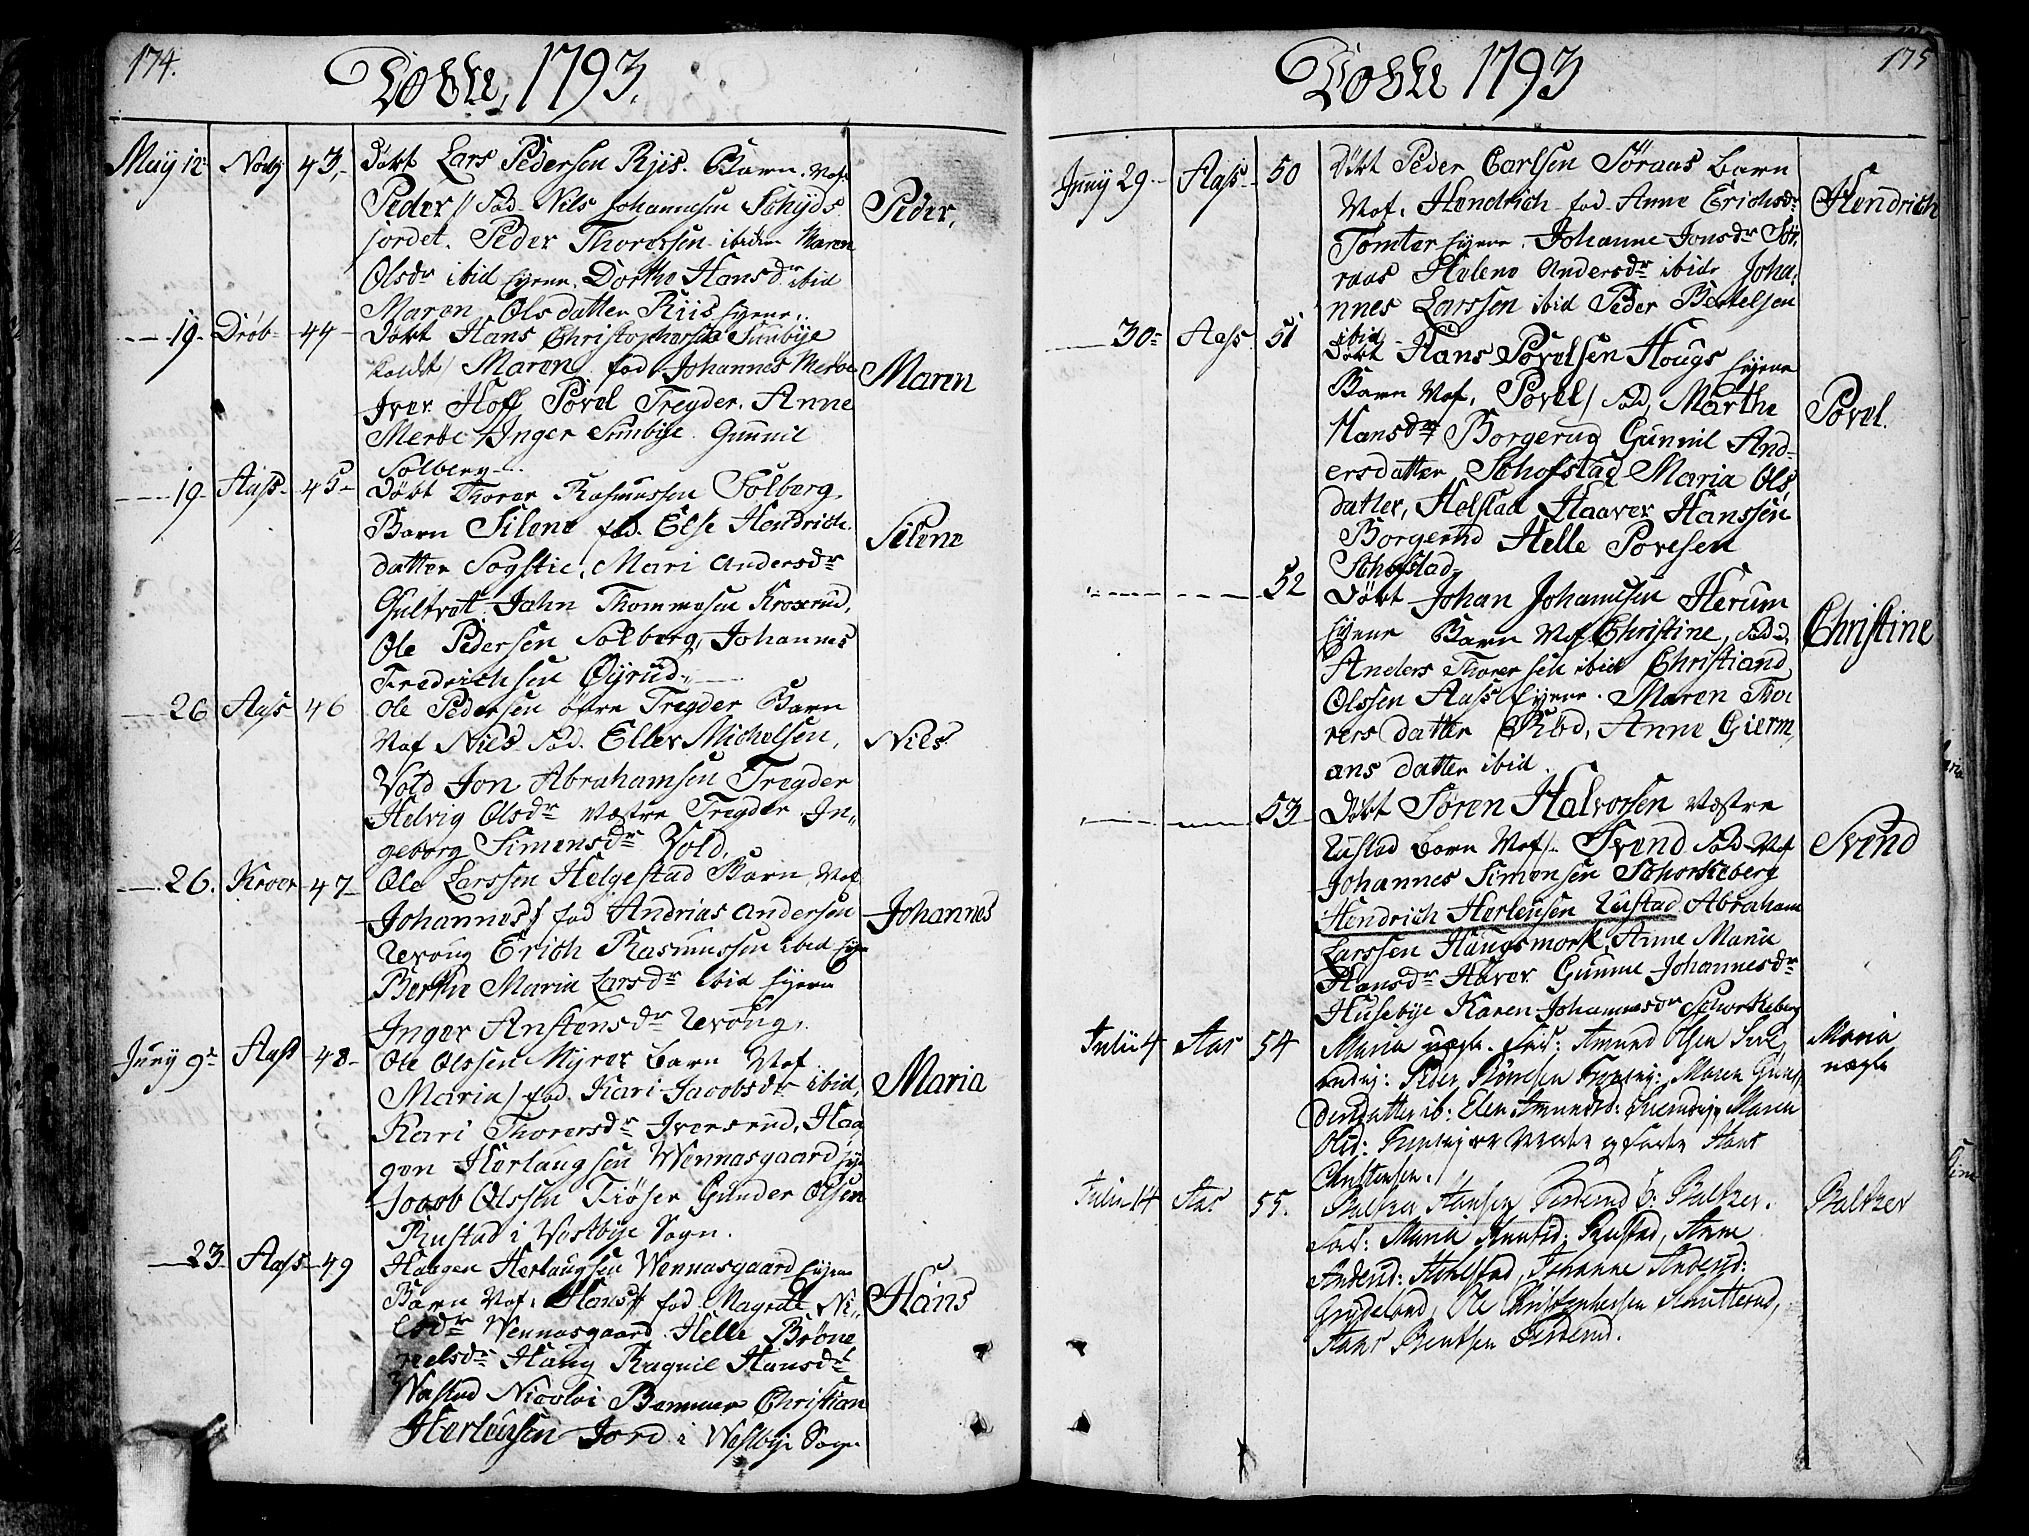 174.
Døbte, 1793.
Maij 12 Nord 43,- Døbt Lars Pedersen Rÿis. Barn. Vof.
Peder/ Fad. Nils Johannesen Schÿds
jordet. Peder Thorersen ibidem Maren
Olsdr ibid Hyene, Dorthe Hansdr ibid
Maren Olsdatter Riis Hyene,
Peder,
19 Drøb 44 Døbt Hans Christophersen Sunbÿe
kaldet/ Maren fad Johannes Merøe
Iver Hoff Povel Tregder. Anne
Merøe Inger Sunbÿe Gunnil
Solberg
Maren
19 Aass 45 Døbt Thorer Rasmussen Solberg.
Barn Silene fad. Else Hendrich
datter Sogstie, Mari Andersdr
Gultvet Jahn Thommesen Kroxrud,
Ole Pedersen Solberg, Johannes
Fredrichsen Øÿrud
Silene
26 Aass 46 Ole Pedersen øfre Tregder Barn
Vof Nils Fad. Eller Michelsen,
Vold Jon Abrahamsen Tregder
Helvig Olsdr Væstre Tregder In,,
geborg Simensdr Vold,
Nils
26. Kroer 47 Ole Larssen Helgestad Barn, Vof
Johannes/ fad Andrias Andersen
Wroug Erich Rasmussen ibid Hyene
Berthe Maria Larsdr ibid Hyene
Inger Anstensdr Wroug,
Johannes
Junÿ 9 Aass 48 Ole Olssen Mÿrer barn Vof
Maria/ fad Kari Jacobsdr ibid,
Kari Thorersdr Iversrud, Haa
gen Herlaugsen Wennasgaard
Jacob Olssen Fiøser Gunder Olsen
Rustad i Vestbÿe Sogn.
Maria
23 Aass 49 Haagen Herlaugsen Wennasgaard Hyene
Barn Vof. Hans/ fad. Magrete Ni,,
elsdr Wennasgaard Helle Brøne
nelsdr Haug Ragnil Hansdr
Wastad Nicolai Bemmer Christian
Herleusen Jord i Westbÿe Sogn
Hans
175
Døbte 1793
Junÿ 29 Aass 50 Døbt Peder Carlsen Søraas barn
Vof. Hendrich fad. Anne Erichsdr
Tomter Hyene, Johanne Jonsdr Sør,
raas Helene Andersdr ibid Joha,
nnes Larssen ibid Peder Bertelsen
ibid
Hendrich
30 Aass 51 Døbt Hans Povelsen Hougs Hyene
Barn Vof. Povel/ Fad, Marthe
Hansdr Borgerug Gunnil And
ersdatter Schofstad Maria Ols
datter, Holstad Haaver Hanssen
Borgerud Helle Povelsen
Schofstad
Povel.
52 Døbt Johan Johannesen Herum
Hyene Barn Vof Christine, Fad.
Anders Thorersen ibid Christiand
Olssen Aass Hyene. Maren Tho
rers datter Rød, Anne Gierm
ans datter ibid.
Christine
53 Døbt Søren Halvorsen Væstre
Rustad barn Vof. Svend Fad. Vof
Johannes Simensen Schorkeberg
Hendrich Herleusen Rustad Abraham
Larssen Haugsmork, Anne Maria
Hansdr Haver Gunne Johannesdr
Husebÿe Karen Johannesdr Schorkeberg
Svend
Julii 4 Aas 54 Maria uægte. Fad: Amund Olsen
Peder Maren
dersdatter ib: Elen Amundsd: Maren
Olsd:
Christensen.
Maria
uægte
Julii 14 Aas 55. Baltzer Hansen b: Baltzer.
Fad: Maria Rustad, Anne
Andersd: Holstad, Johanne Andersd:
Grydeland, Ole Christophersen Snutterud,
Hans Bentsen
Baltzer